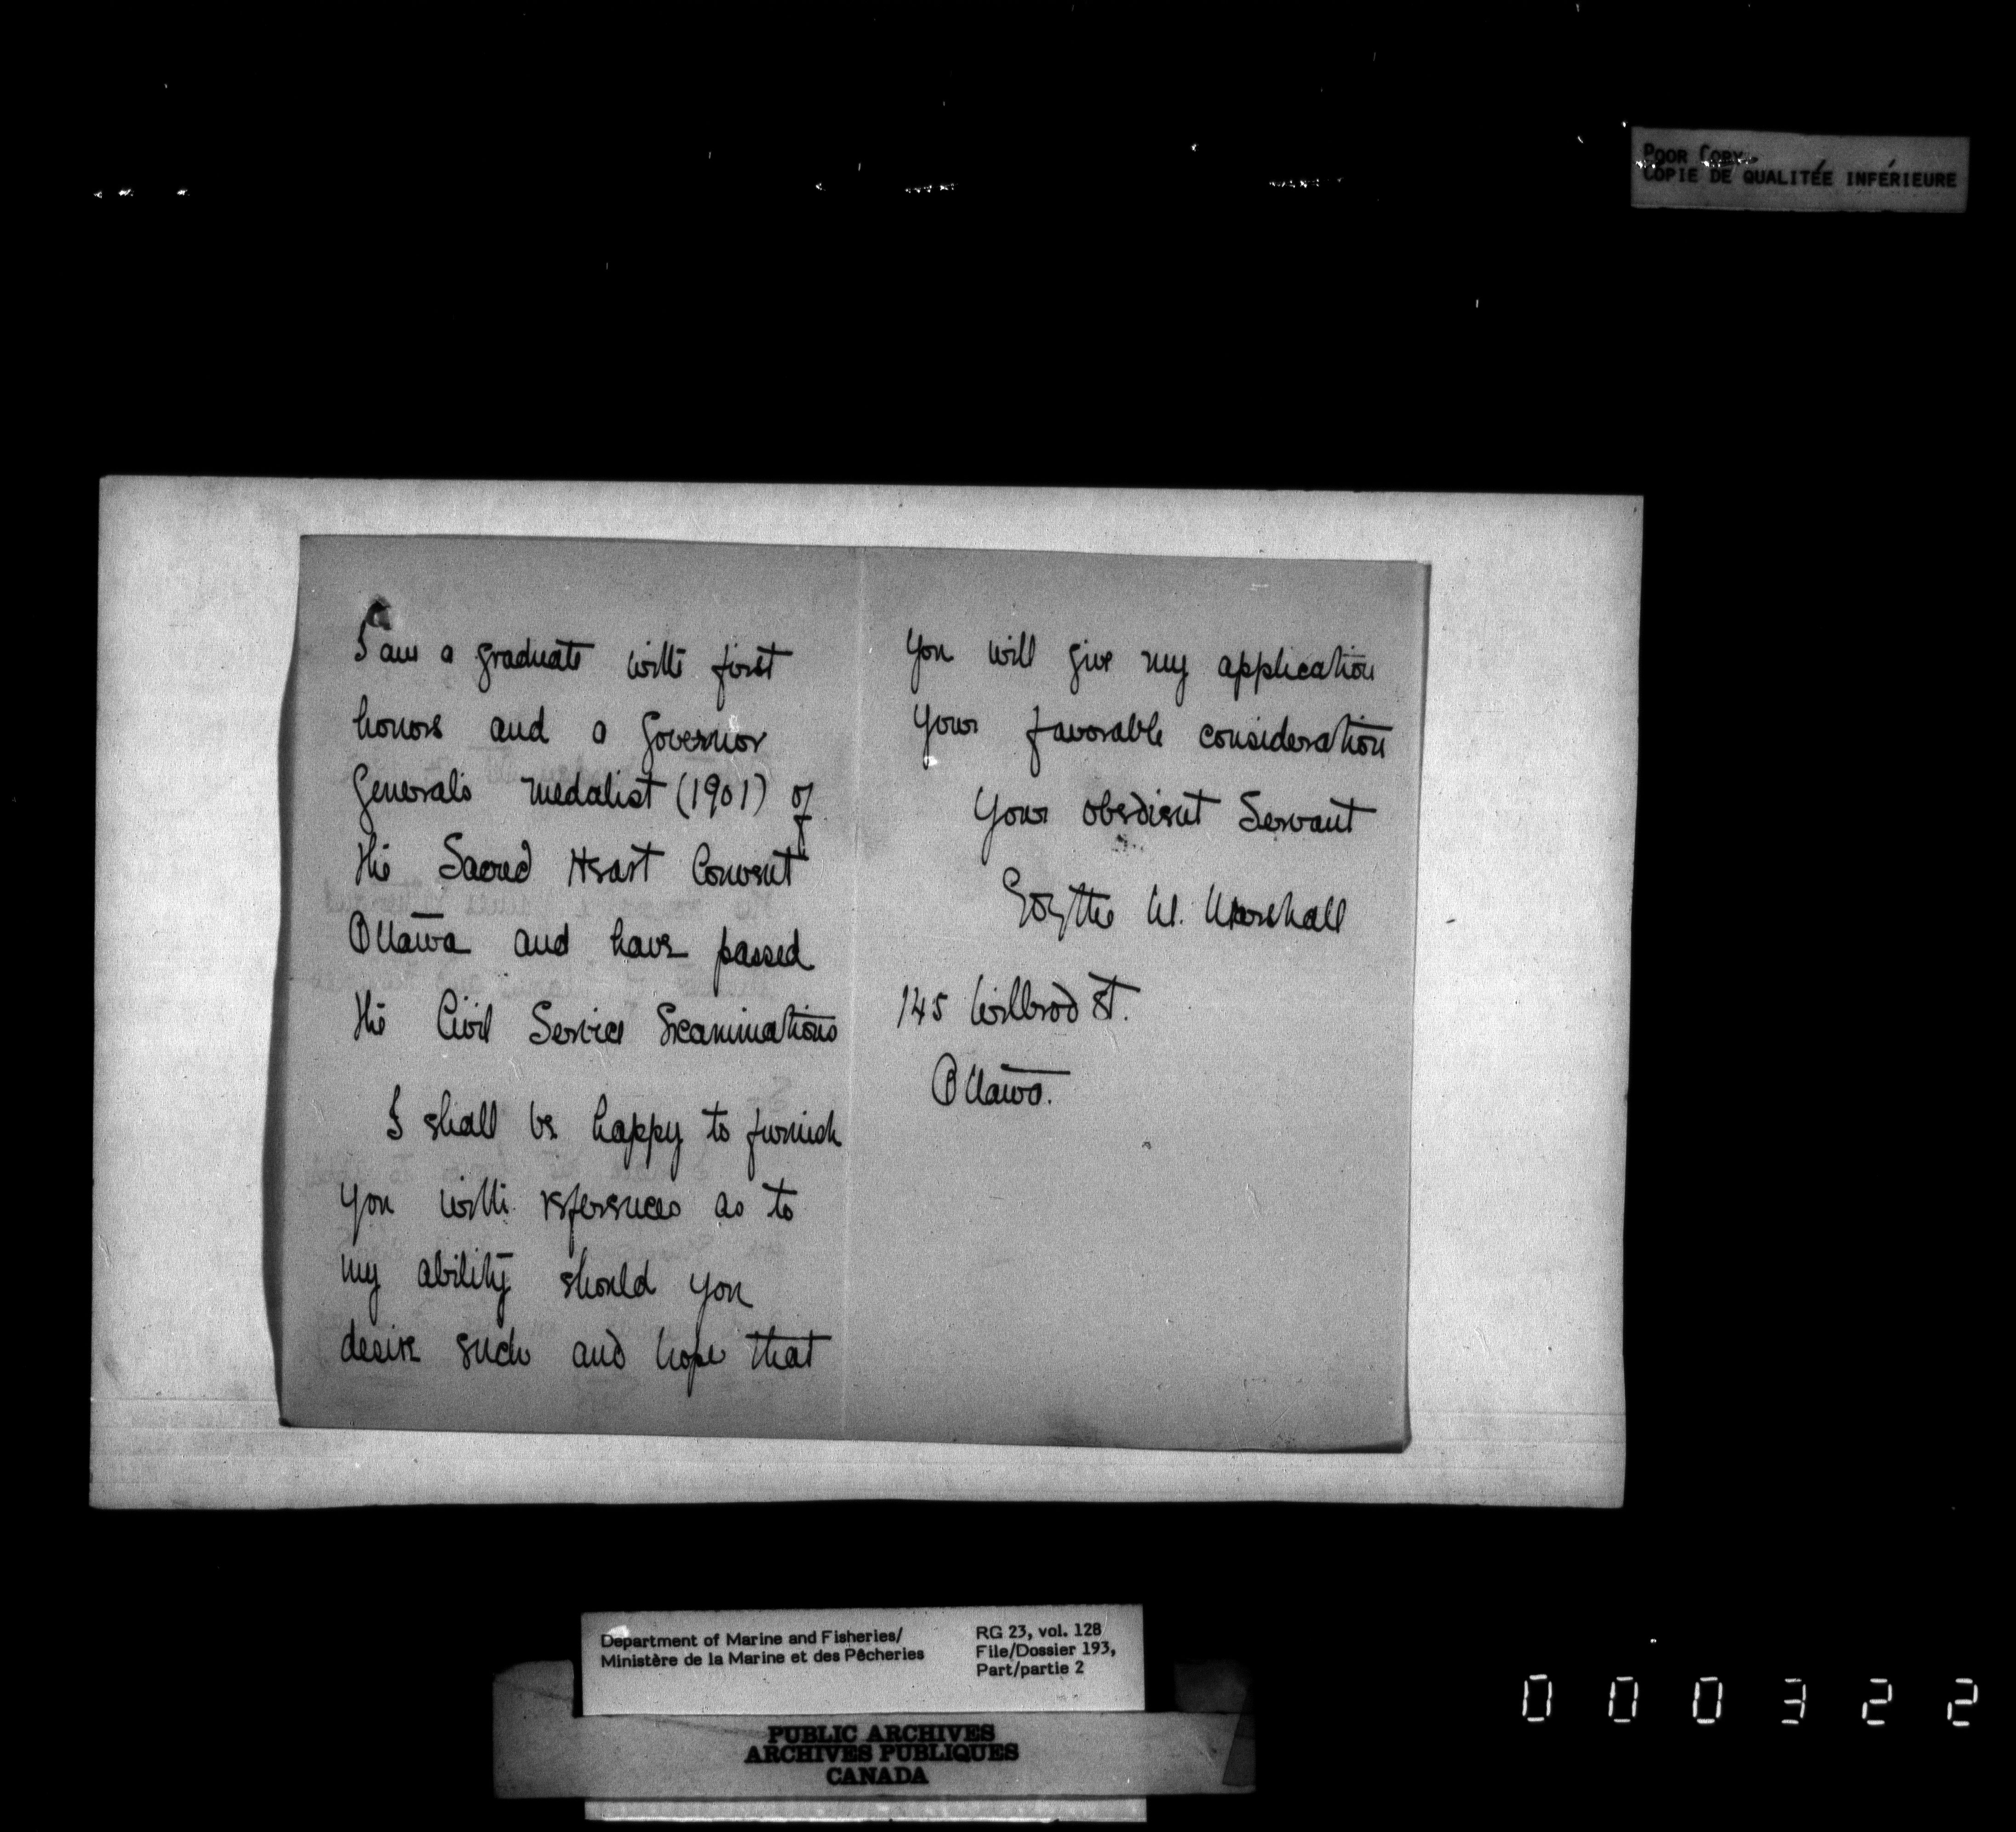 POOR COPY
COPIE DE QUALITÉE INFÉRIEURE
I am a graduate with first
honors and a Governor
Generals medalist (1901) of
the Sacred Heart Convent
Ottawa and have passed
the Civil Service Examinations
I shall be happy to furnish
you with references as to
my ability should you
desire such and hope that
you will give my application
your favorable consideration
Your obedient Servant
M. Marshall
145 Wilbrod St.
Ottawa.
Department of Marine and Fisheries/
Ministère de la Marine et des Pêcheries
RG 23, vol. 128
File/Dossier 193,
Part/partie 2
PUBLIC ARCHIVES
ARCHIVES PUBLIQUES
CANADA
000322